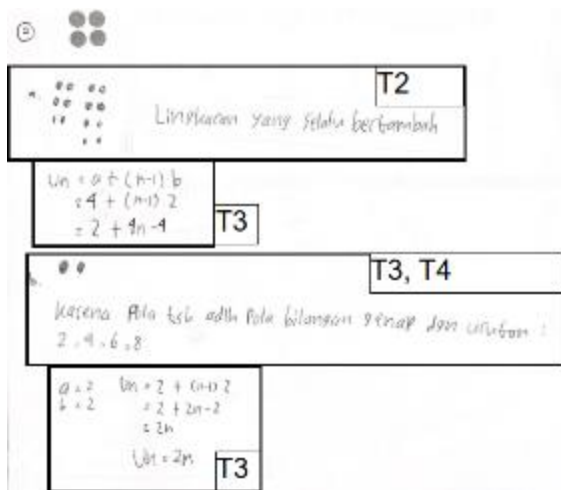 ②
T2
a. Lingkaran yang selalu bertambah
Un = a + (n-1) b
= 4 + (n-1) 2
= 2 + 4n - 4
T3
T3, T4
b.
karena Pola tsb adlh Pola bilangan genap dan urutan :
2, 4, 6, 8
a = 2 Un = 2 + (n-1) 2
b = 2 = 2 + 2n - 2
= 2n
Un = 2n
T3